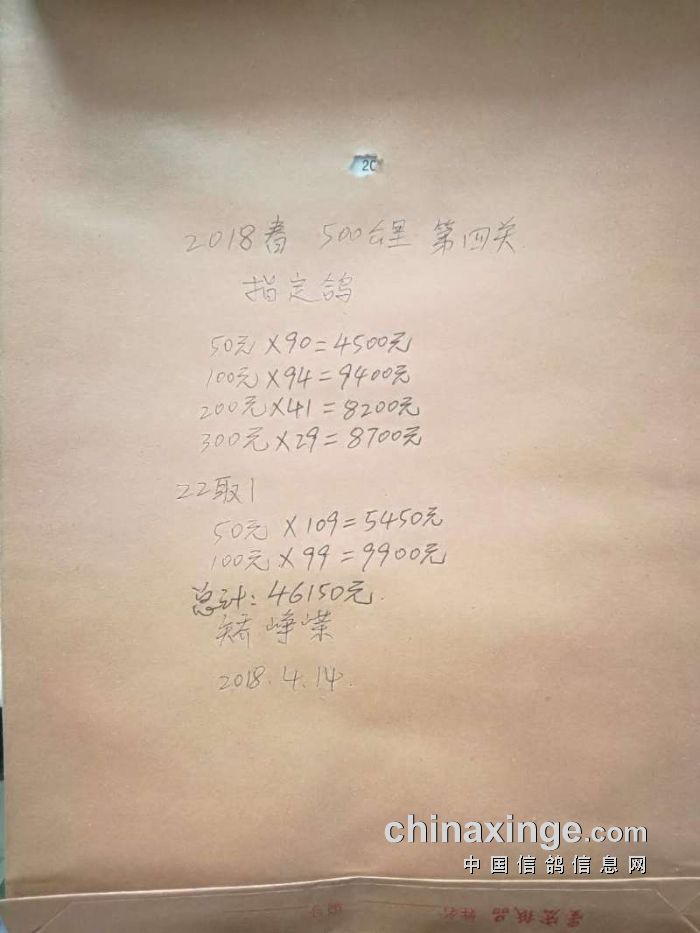 2C
2018春 500公里 第四关
指定鸽
50元×90=4500元
100元×94=9400元
200元×41=8200元
300元×29=8700元
22取1
50元×109=5450元
100元×99=9900元
总计:46150元.
矫峥嵘
2018.4.14.
chinaxinge.com
中国信鸽信息网
纸品 姓名 编号